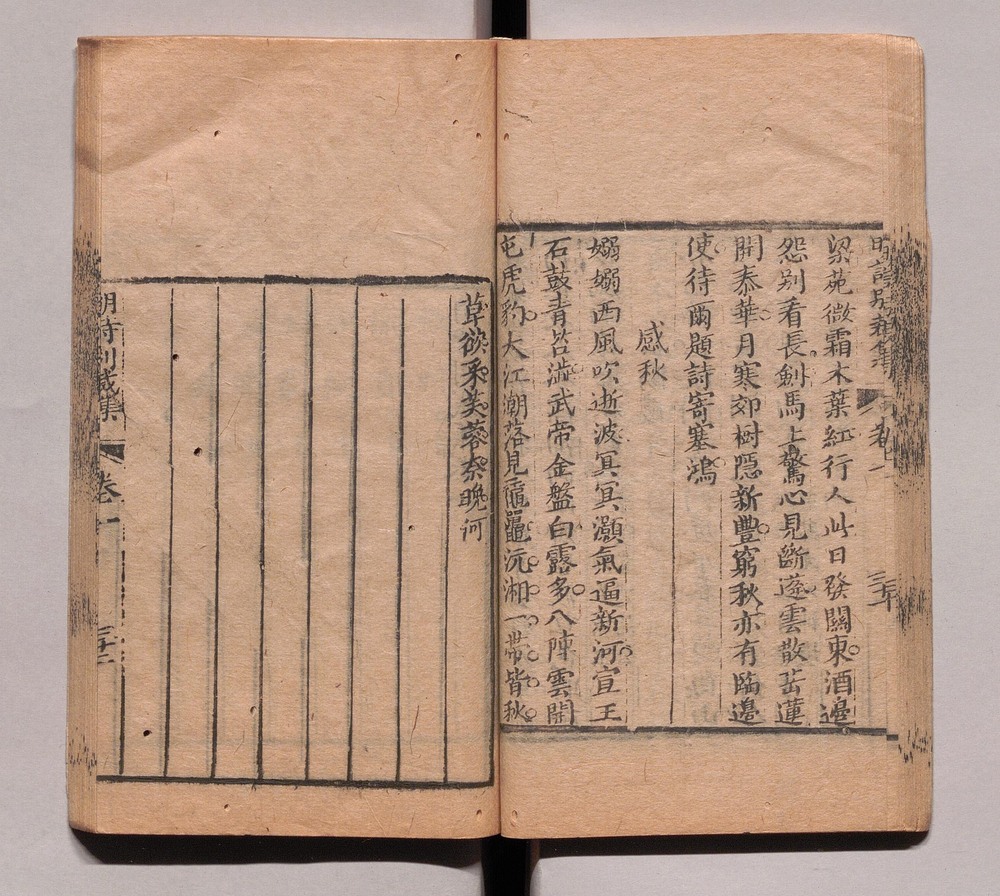 明詩別裁集 卷十一 三十
梁苑微霜木葉紅行人此日發關東酒邊
怨別看長劍馬上驚心見斷蓬雲散岳蓮
開泰華月寒郊樹隱新豐窮秋亦有臨邊
使待爾題詩寄塞鴻
感秋
嫋嫋西風吹逝波冥冥灝氣逼新河宣王
石鼓青苔澁武帝金盤白露多八陣雲開
屯虎豹大江潮落見黿鼉沅湘一帶皆秋
草欲采芙蓉奈晚何
明詩別裁集 卷十一 三十一